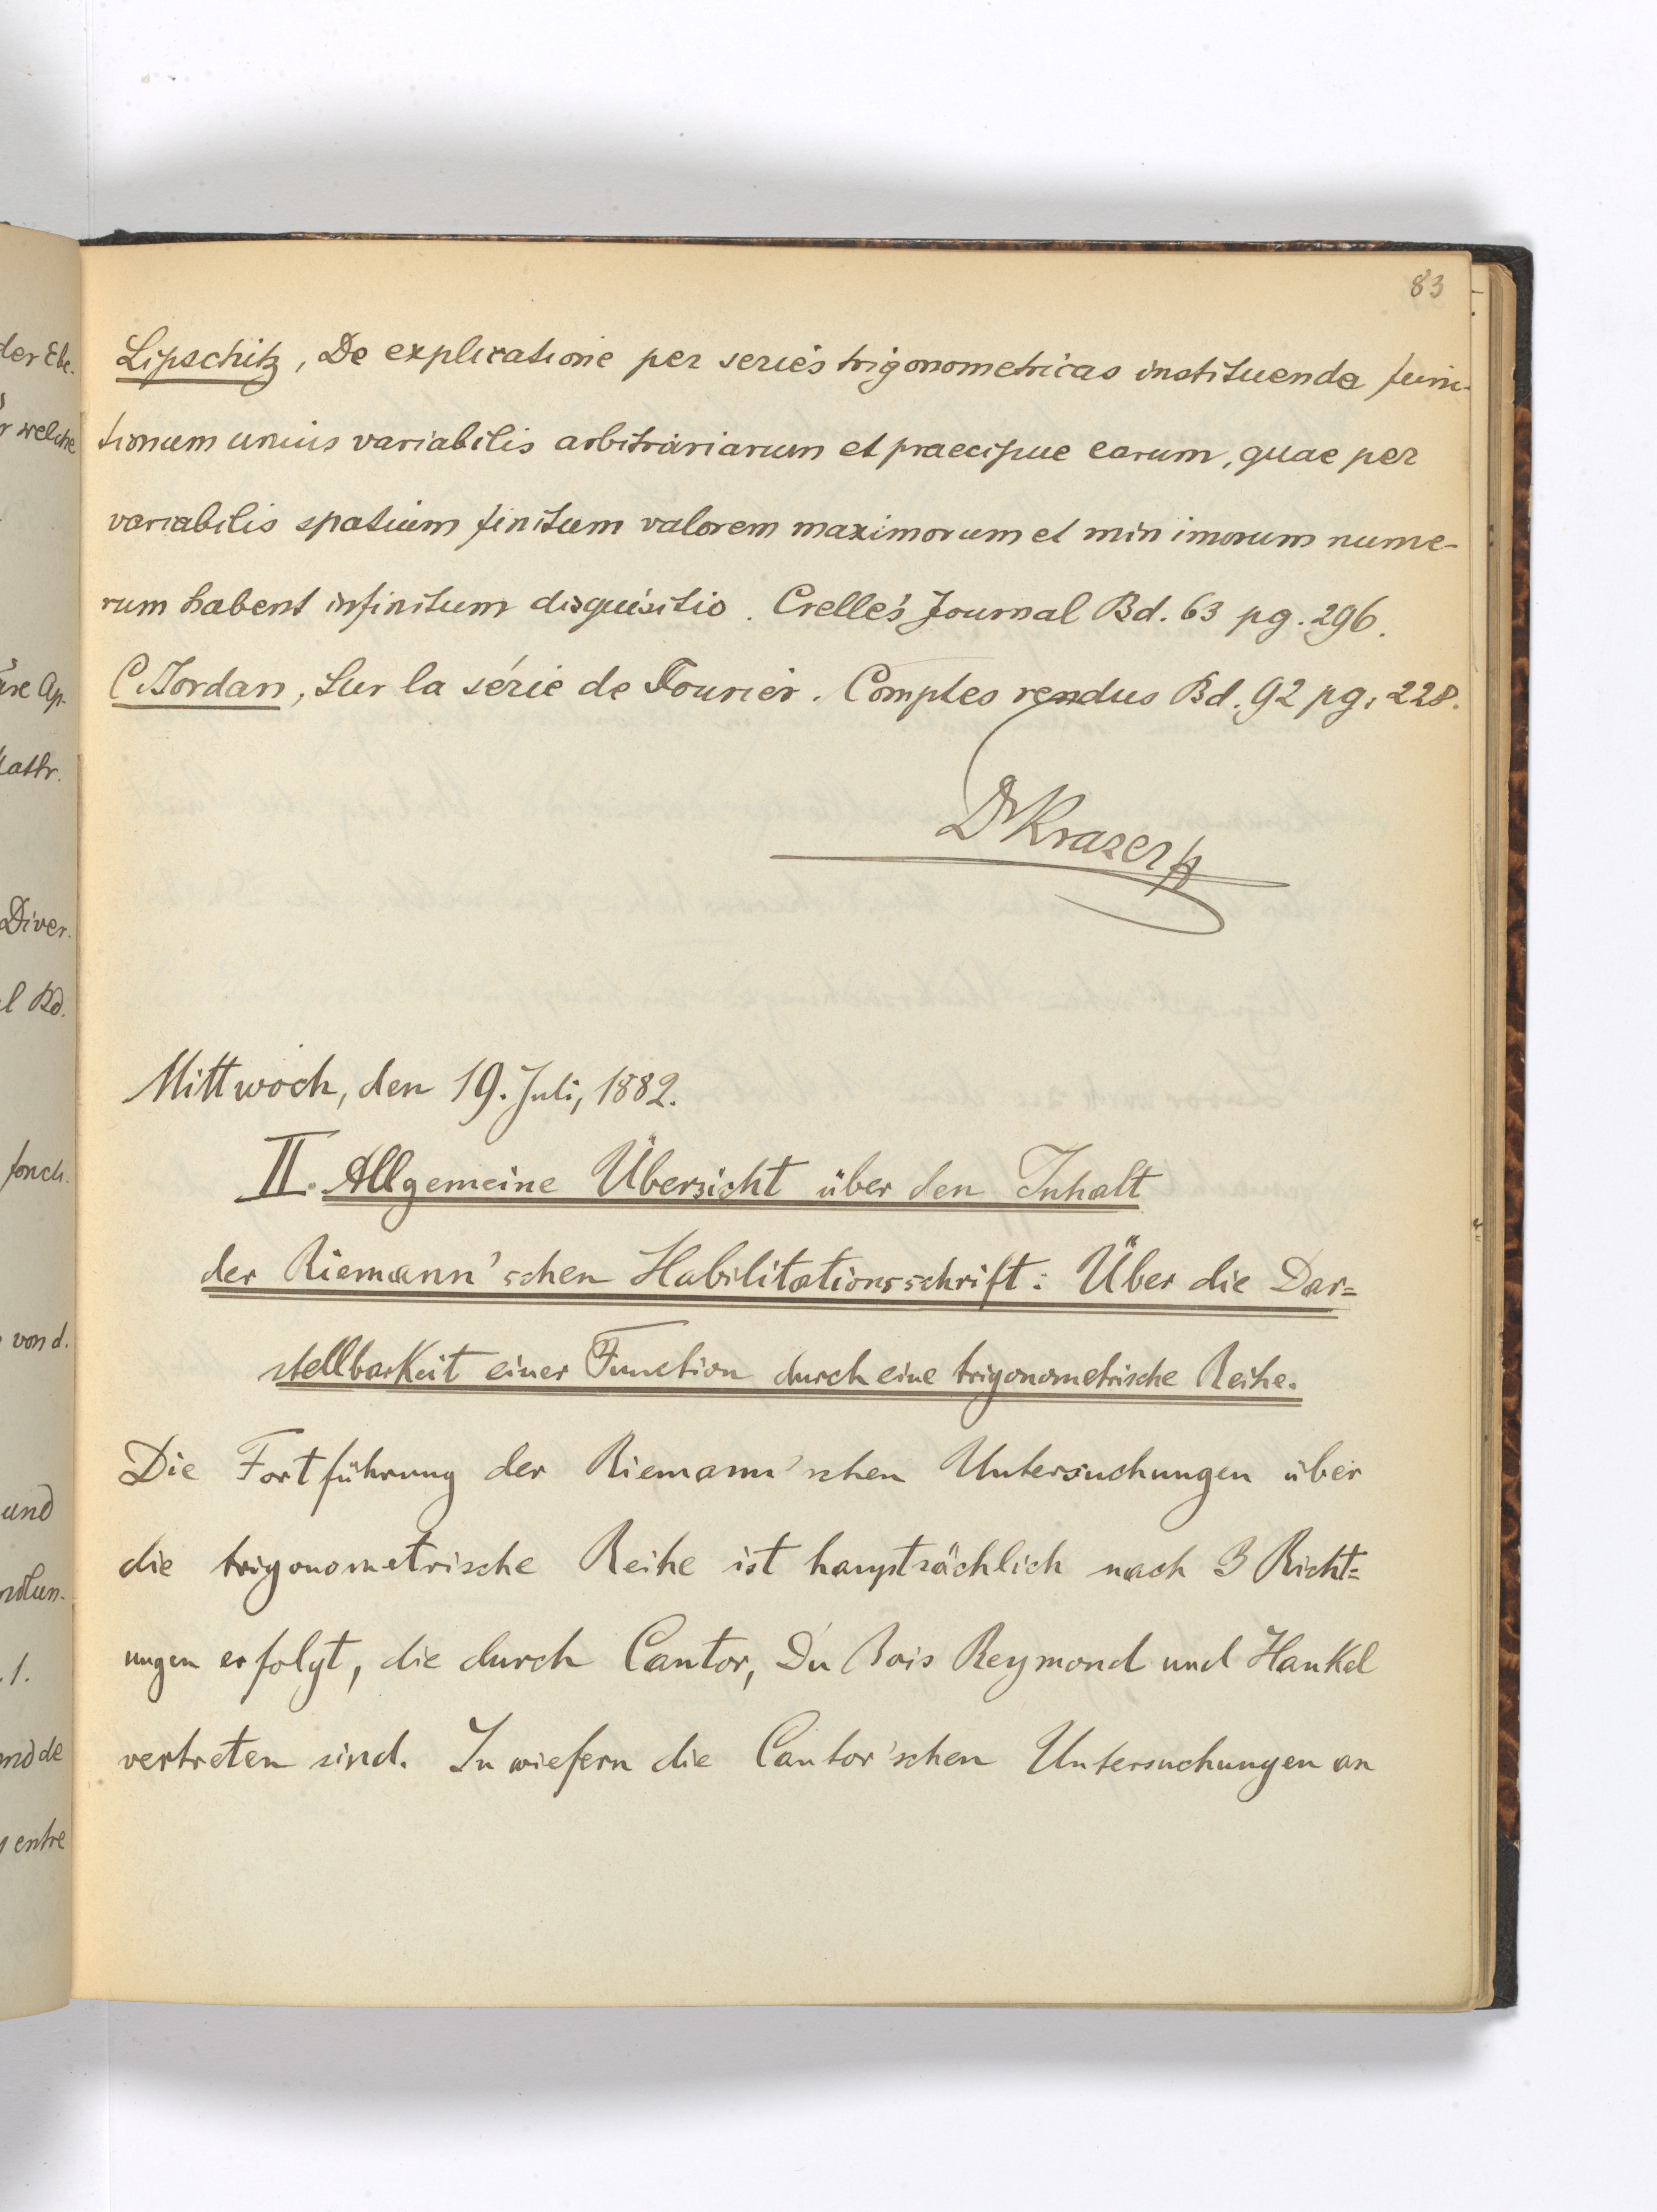 83
Lipschitz, De explicatione per series trigonometricas instituenda func-
tionum unius variabilis arbitrariarum et praecipue earum, quae per
variabilis spatium finitum valorem maximorum et minimorum nume-
rum habent infinitum disquisitio. Crelle's Journal Bd. 63 pg. 296.
C. Jordan, Sur la série de Fourier. Comptes rendus Bd. 92 pg. 228.
Dr Krazer
Mittwoch, den 19. Juli, 1882.
II. Allgemeine Übersicht über den Inhalt
der Riemann'schen Habilitationsschrift: Über die Dar=
stellbarkeit einer Function durch eine trigonometrische Reihe.
Die Fortführung der Riemann'schen Untersuchungen über
die trigonometrische Reihe ist hauptsächlich nach 3 Richt=
ungen erfolgt, die durch Cantor, Du Bois Reymond und Hankel
vertreten sind. In wiefern die Cantor'schen Untersuchungen an
der Ebe.
r welche
äre Ap.
Math.
Diver.
l Bd.
fonct.
von d.
und
ndlun-
.1.
nd de
entre